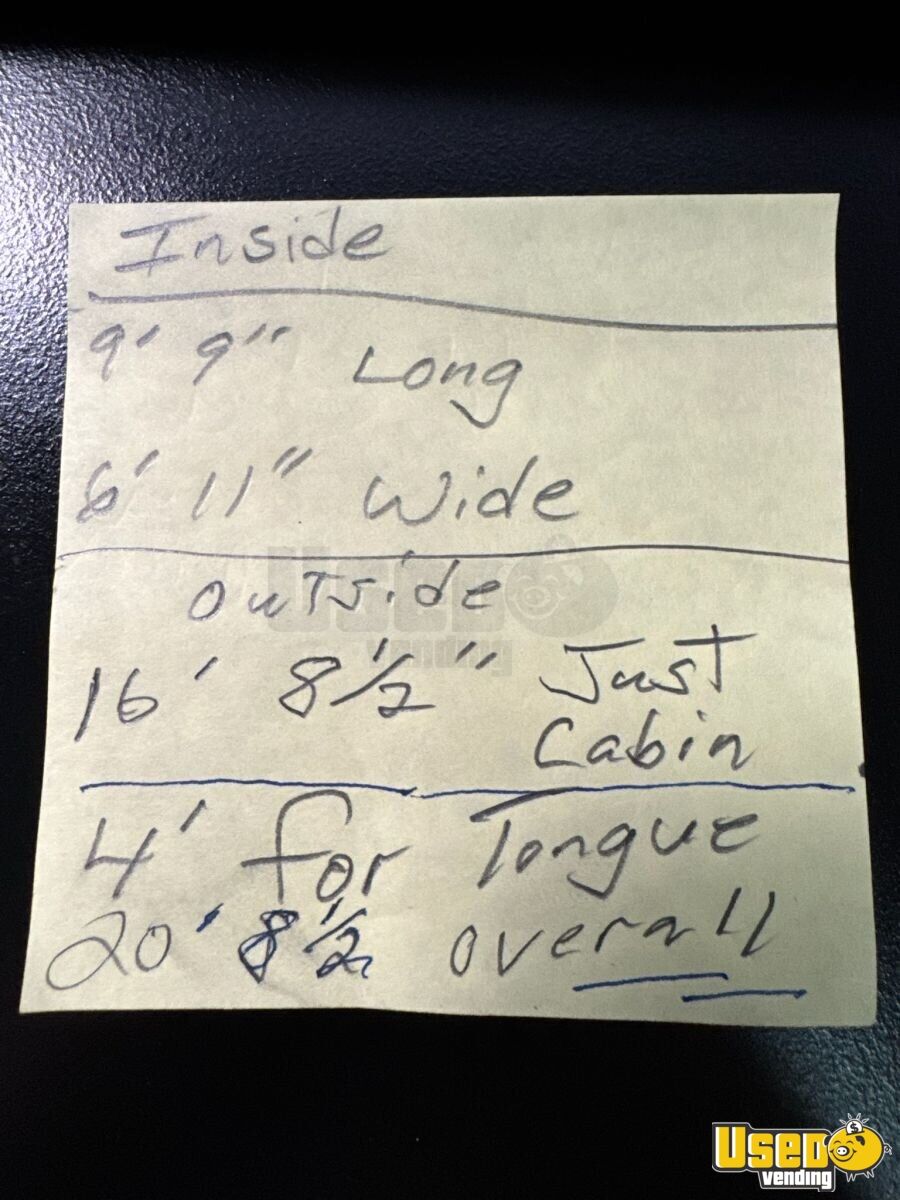 Inside
9' 9" Long
6' 11" Wide
Outside
16' 8 1/2" Just
Cabin
4' for Tongue
20' 8 1/2 overall
Used
vending
Used
vending